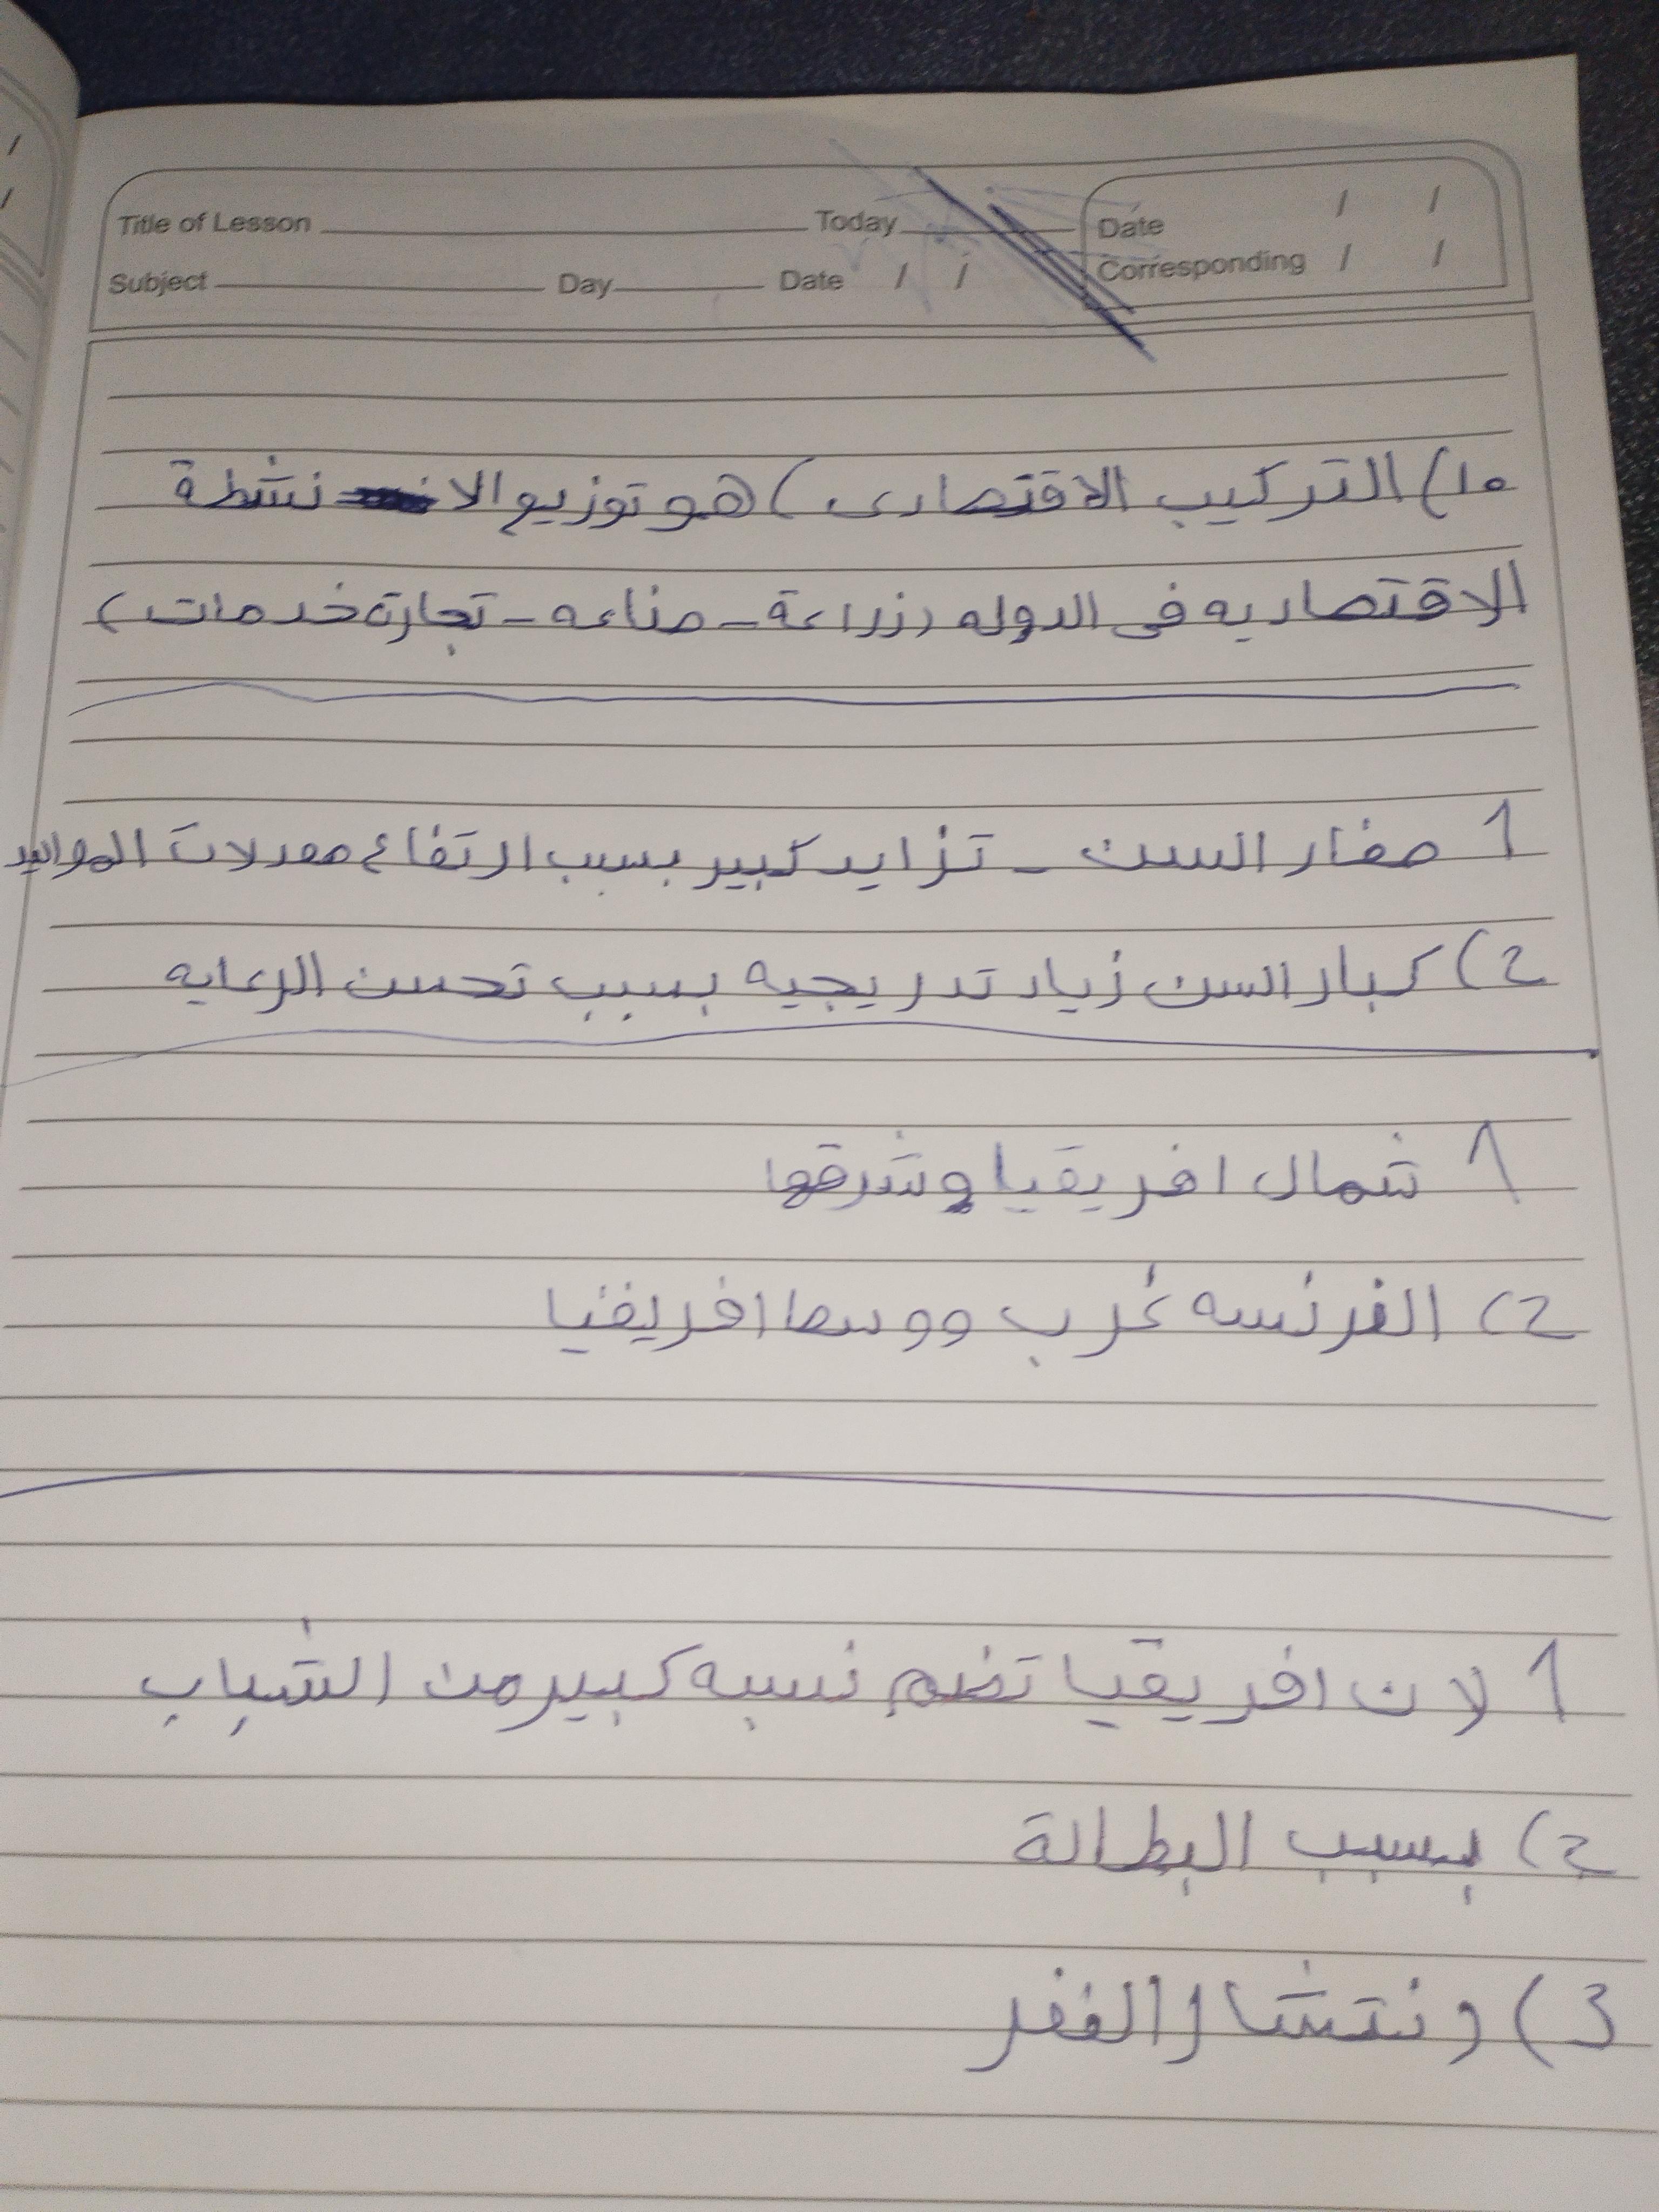 Title of Lesson Today Date / /
Subject Day Date / / Corresponding / /
10) التركيب الاقتصادى) هو توزيع الا نشطة
الاقتصاديه فى الدوله (زراعة - صناعه - تجارة خدمات)
1 صغار السن - تزايد كبير بسبب ارتفاع معدلات المواليد
2) كبار السن زياد تدريجيه بسبب تحسن الرعايه
1 شمال افريقيا وشرقها
2) الفرنسه غرب ووسط افريفيا
1 لان افريقيا تضم نسبه كبير من الشباب
2) بسبب البطالة
3) ونتشار الففر